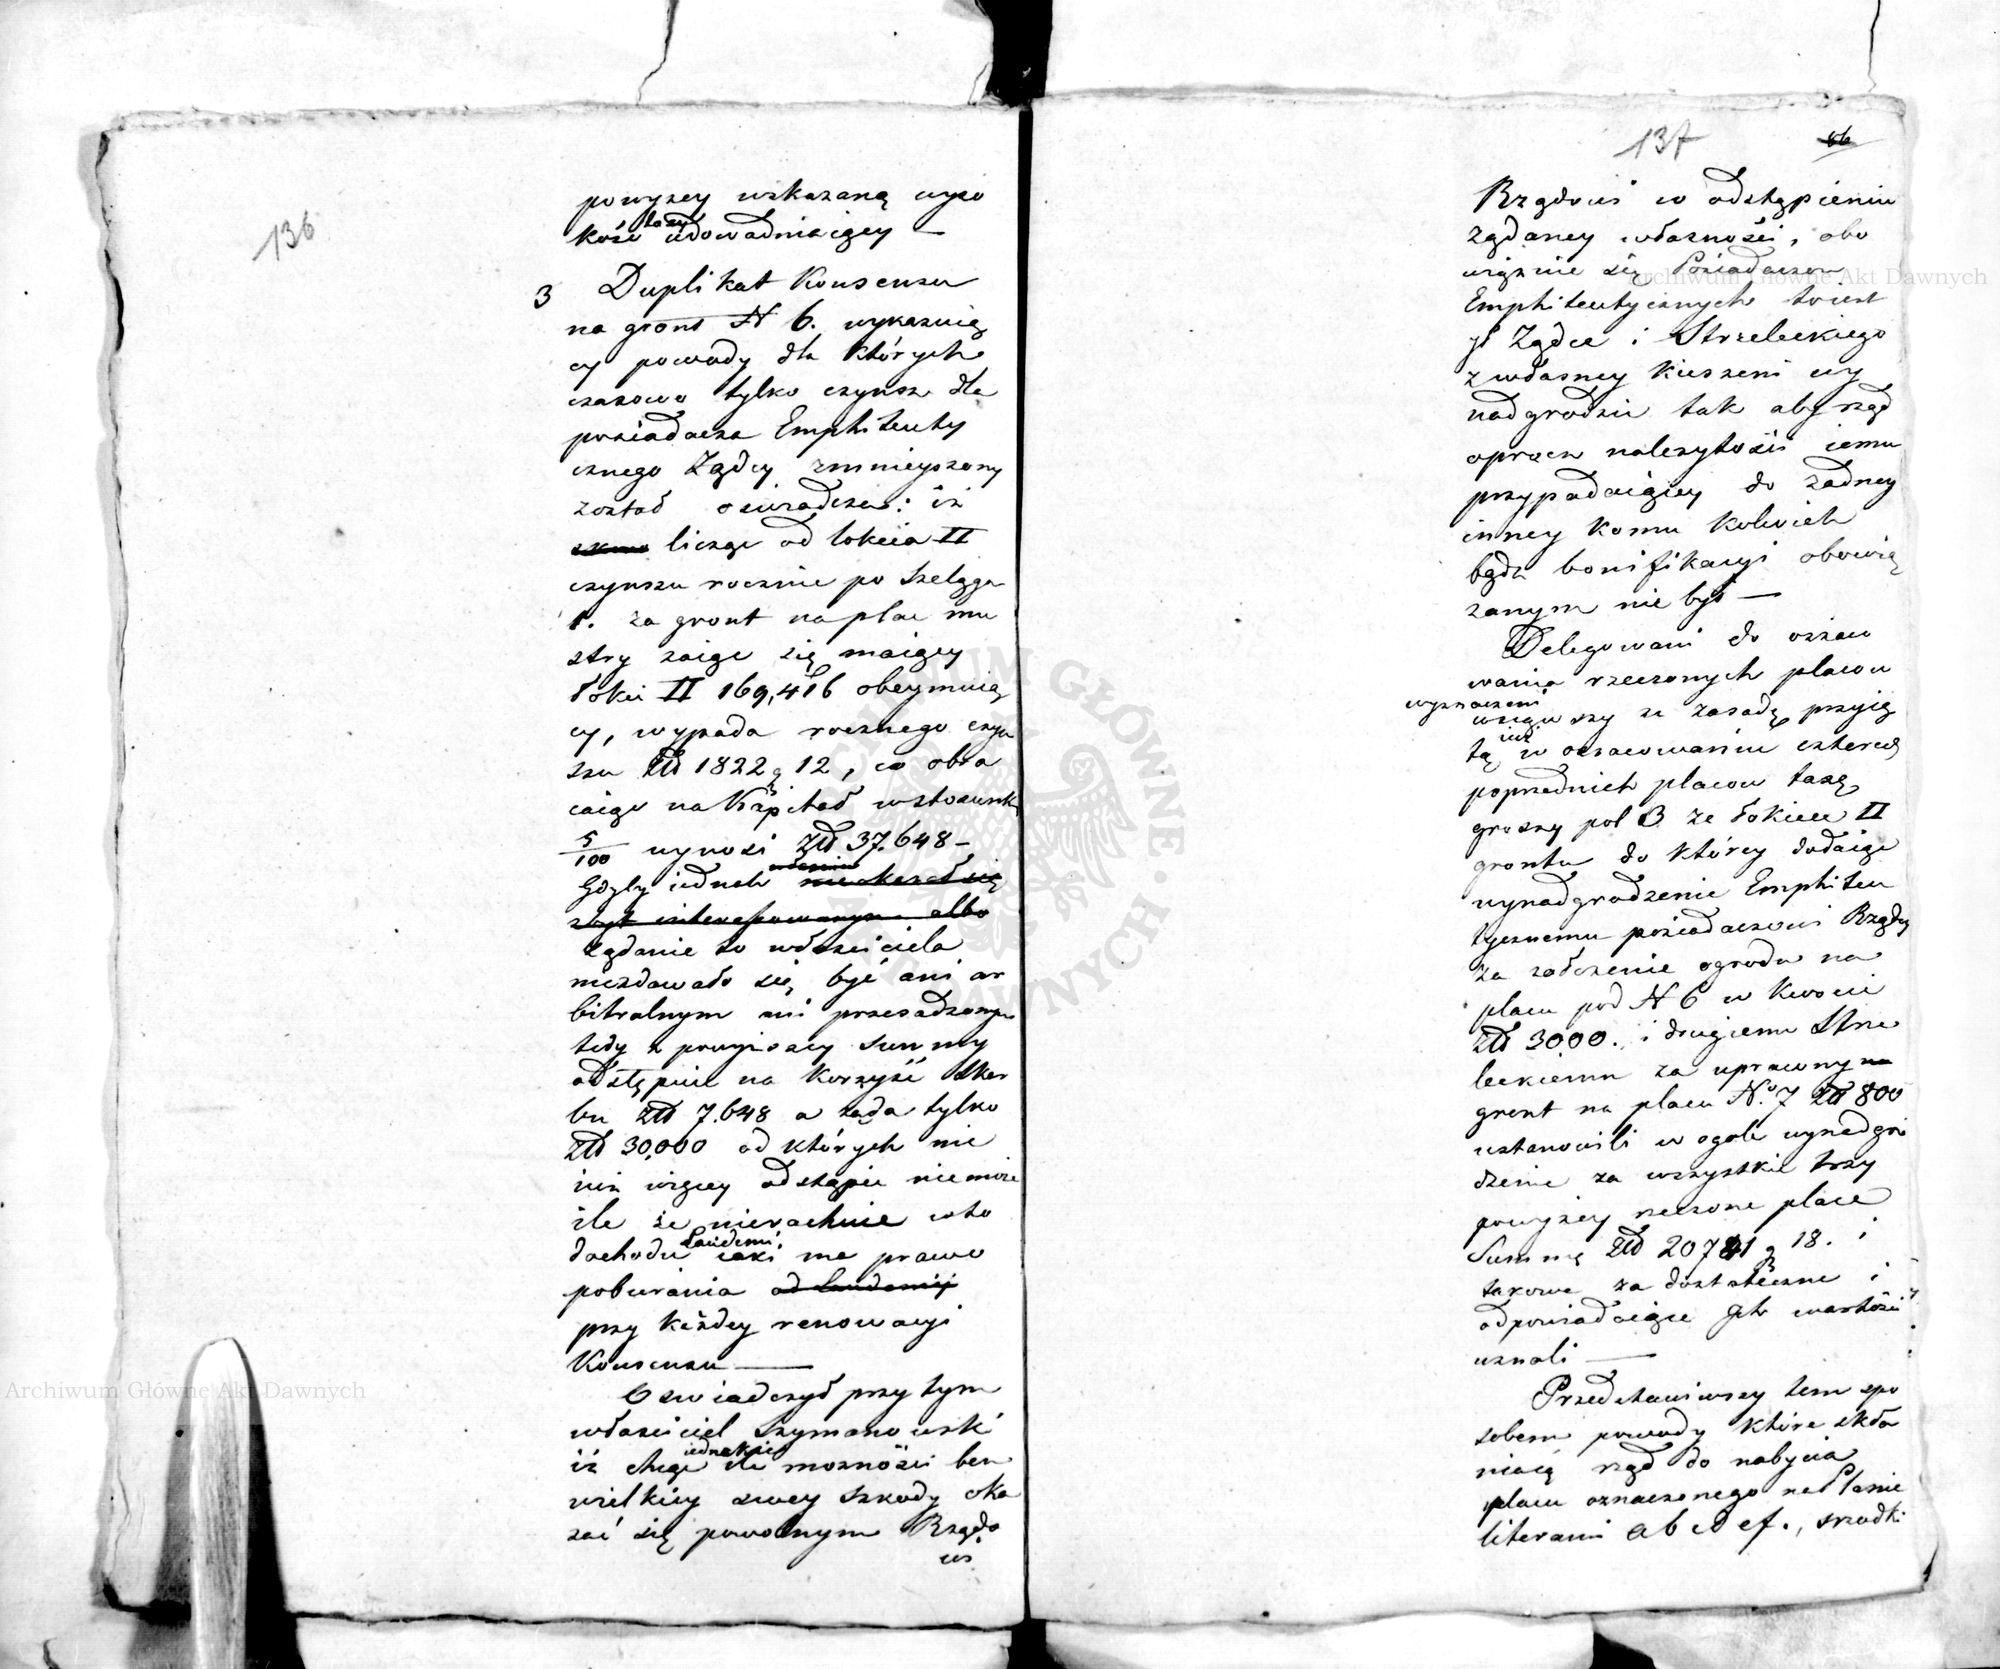 136
powyzey wskazaną wyso
kość taxy udowadniaiącey —
3 Duplikat Konsensu
na gront N 6. wykazuią
cy powody dla których
czasowo tylko czynsz dla
posiadacza Emphiteuty
cznego Ządcy zmnieyszony
został oswiadcza: iż
licząc od łokcia II
czynszu rocznie po szeląga
1. za gront na plac mu
stry zaiąć się maiący
łokci II 169,416 obeymuią
cy, wypada rocznego czyn
szu Złł 1822 g 12, co obra
caiąc na Kapitał w stosunku
5/100 wynosi Złł 37.648 —
Gdyby iednak
zbyt interessowanym albo
żądanie to właściciela
niezdawało się być ani ar
bitralnym ani przesadzonym
tedy z powyższey Summy
odstępuie na korzyść Skar
bu Złł 7.648 a żąda tylko
Złł 30,000 od których nic
iuż więcey odstąpić niemoże
ile że nierachuie w to
dochodu Laudemi iaki ma prawo
pobierania od Laudemij
przy każdey renowacyi
Konsensu —
Oswiadczył przy tym
właściciel Szymanowski
iż chcąc iednakże ile możności bez
wielkiey swey szkody oka
zać się powolnym Rządo
wi
137
66
Rządowi w odstąpieniu
żądaney własności, obo
wiązuie się Posiadaczow
Emphiteutycznych toiest
ył Ządce i Strzeleckiego
z własney kieszeni wy
nadgrodzić tak aby rząd
oprocz należytości iemu
przypadaiącey do żadney
inney komu kolwiek
bądz bonifikacyi obowią
zanym nie był —
Delegowani do oszaco
wania rzeczonych placow
wyznaczeni
wziąwszy za zasadę przyię
tą iuż w oszacowaniu czterech
poprzednich placow taxę
groszy pol 3 za łokieć II
grontu do którey dodaiąc
wynadgrodzenie Emphiteu
tycznemu posiadaczowi Rządcy
za założenie ogrodu na
placu pod N 6 w kwocie
Złł 3000. i drugiemu Strze
leckiemu za uprawny
gront na placu No 7 Złł 800
ustanowili w ogole wynadgro
dzenie za wszystkie trzy
powyżey rzeczone place
Summę Złł 20741 g 18. i
takowe za dostateczne i
odpowiadaiące Ich wartości
uznali —
Przedstawiwszy tem spo
sobem powody które skła
niaią rząd do nabycia
placu oznaczonego na Planie
literami a b c d e f., srzodki
Archiwum Główne Akt Dawnych
Archiwum Główne Akt Dawnych
ARCHIWUM GŁÓWNE · AKT DAWNYCH ·